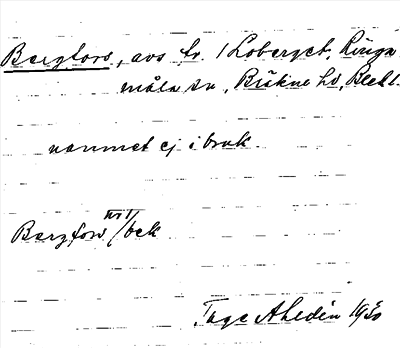 Bergfors, avs fr. 1 Loberget, Ringa
måla sn, Bräkne hd, Blek l.
namnet ej i bruk.
Bergfors III/bek
Tage Ahldén 1930